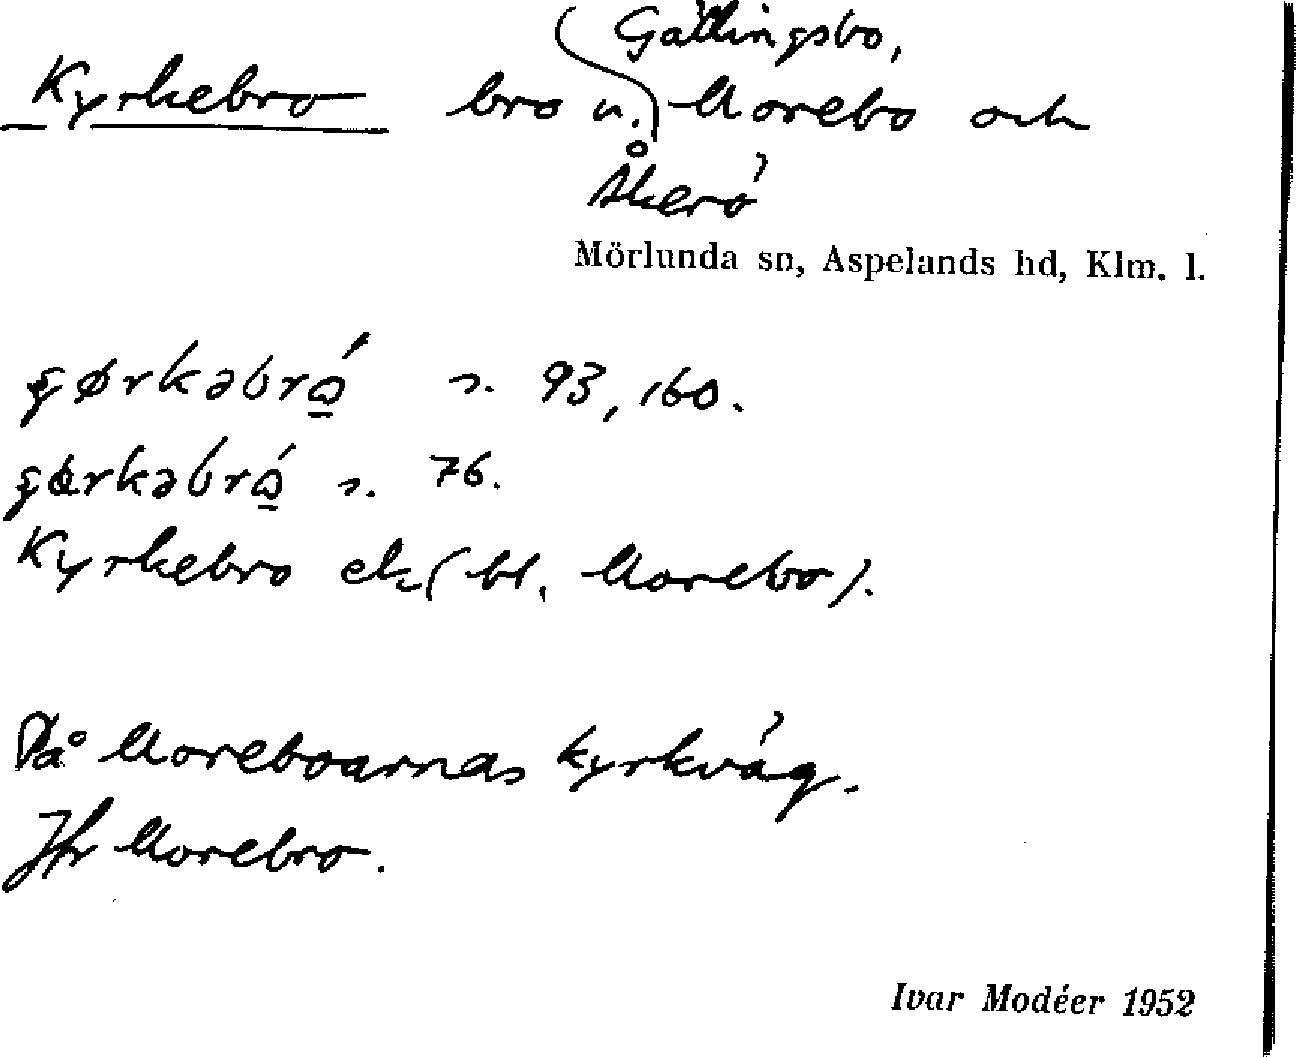 Gällingsbo,
Kyrkebro bro n. Morebo och
Åkerö
Mörlunda sn, Aspelands hd, Klm. l.
s. 93, 160.
s. 76.
Kyrkebro ek (bl. Morebo).
På Moreboarnas kyrkväg.
Jfr Morebro.
Ivar Modéer 1952